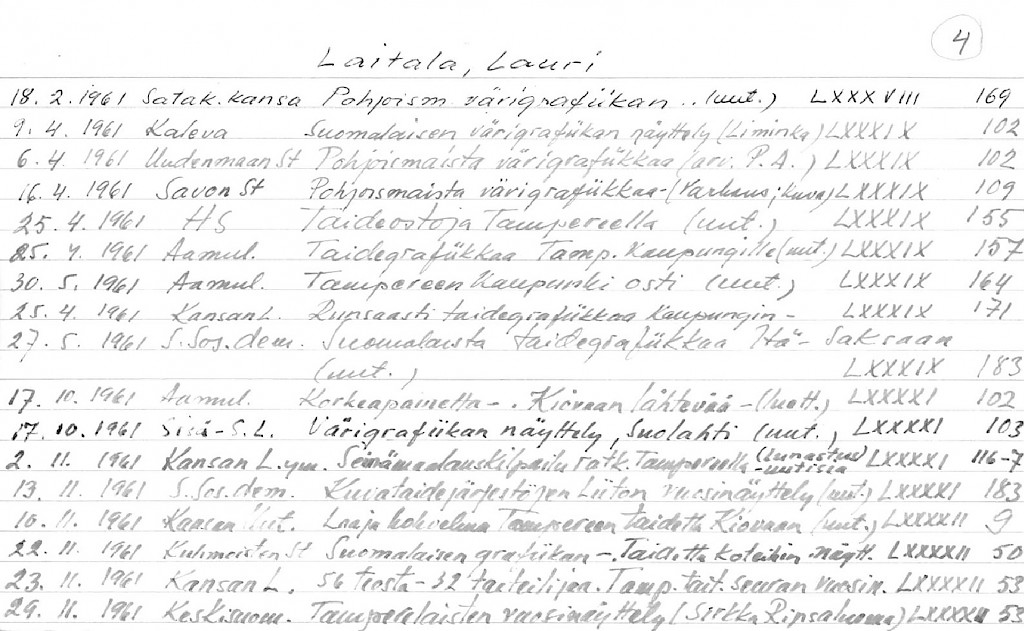 4
Laitala, Lauri
18. 2. 1961 Satak. kansa Pohjoism. värigrafiikan .. (uut.) LXXXVIII 169
9. 4. 1961 Kaleva Suomalaisen värigrafiikan näyttely (Liminka) LXXXIX 102
6. 4. 1961 Uudenmaan St Pohjoismaista värigrafiikkaa (arv. P.A.) LXXXIX 102
16. 4. 1961 Savon St Pohjoismaista värigrafiikkaa - (Varkaus; kuva) LXXXIX 109
25. 4. 1961 HS Taideostoja Tampereella (uut.) LXXXIX 155
25. 4. 1961 Aamul. Taidegrafiikkaa Tamp. kaupungille (uut.) LXXXIX 157
30. 5. 1961 Aamul. Tampereen kaupunki osti (uut.) LXXXIX 164
25. 4. 1961 Kansan L. Runsaasti taidegrafiikkaa kaupungin - LXXXIX 171
27. 5. 1961 S. Sos. dem. Suomalaista taidegrafiikkaa Itä-Saksaan
(uut.) LXXXIX 183
17. 10. 1961 Aamul. Korkeapainetta - . Kiovaan lähtevää - (luett.) LXXXXI 102
17. 10. 1961 Sisä-S. L. Värigrafiikan näyttely, Suolahti (uut., LXXXXI 103
2. 11. 1961 Kansan L. ym. Seinämaalauskilpailu ratk. Tampereella (Lunastus) - uutisia LXXXXI 116-7
13. 11. 1961 S. Sos. dem. Kuvataidejärjestöjen Liiton vuosinäyttely (uut.) LXXXXI 183
10. 11. 1961 Kansan Uut. Laaja kokoelma Tampereen taidetta Kiovaan (uut.) LXXXXII 9
22. 11. 1961 Kuhmoisten St Suomalaisen grafiikan -. Taidetta koteihin näytt. LXXXXII 50
23. 11. 1961 Kansan L. 56 teosta - 32 taiteilijaa. Tamp. tait. seuran vuosin. LXXXXII 53
29. 11. 1961 Keskisuom. Tamperelaisten vuosinäyttely (Sirkka Ripsaluoma) LXXXXII 53